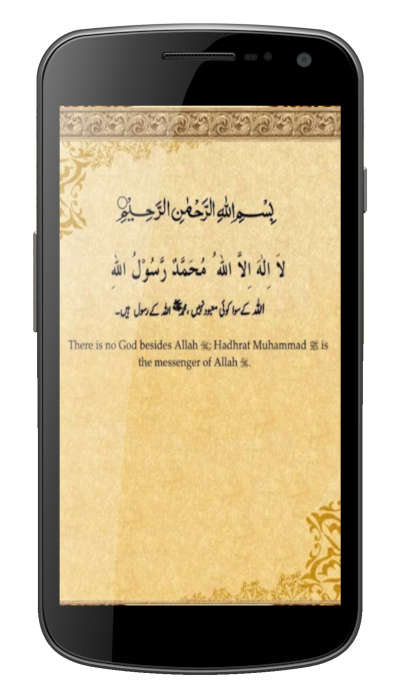 بِسْمِ اللهِ الرَّحْمٰنِ الرَّحِيْمِ
لَا اِلٰهَ اِلَّا اللهُ مُحَمَّدٌ رَّسُوْلُ اللهِ
اللہ کے سوا کوئی معبود نہیں، محمد ﷺ اللہ کے رسول ہیں۔
There is no God besides Allah ﷻ; Hadhrat Muhammad ﷺ is
the messenger of Allah ﷻ.